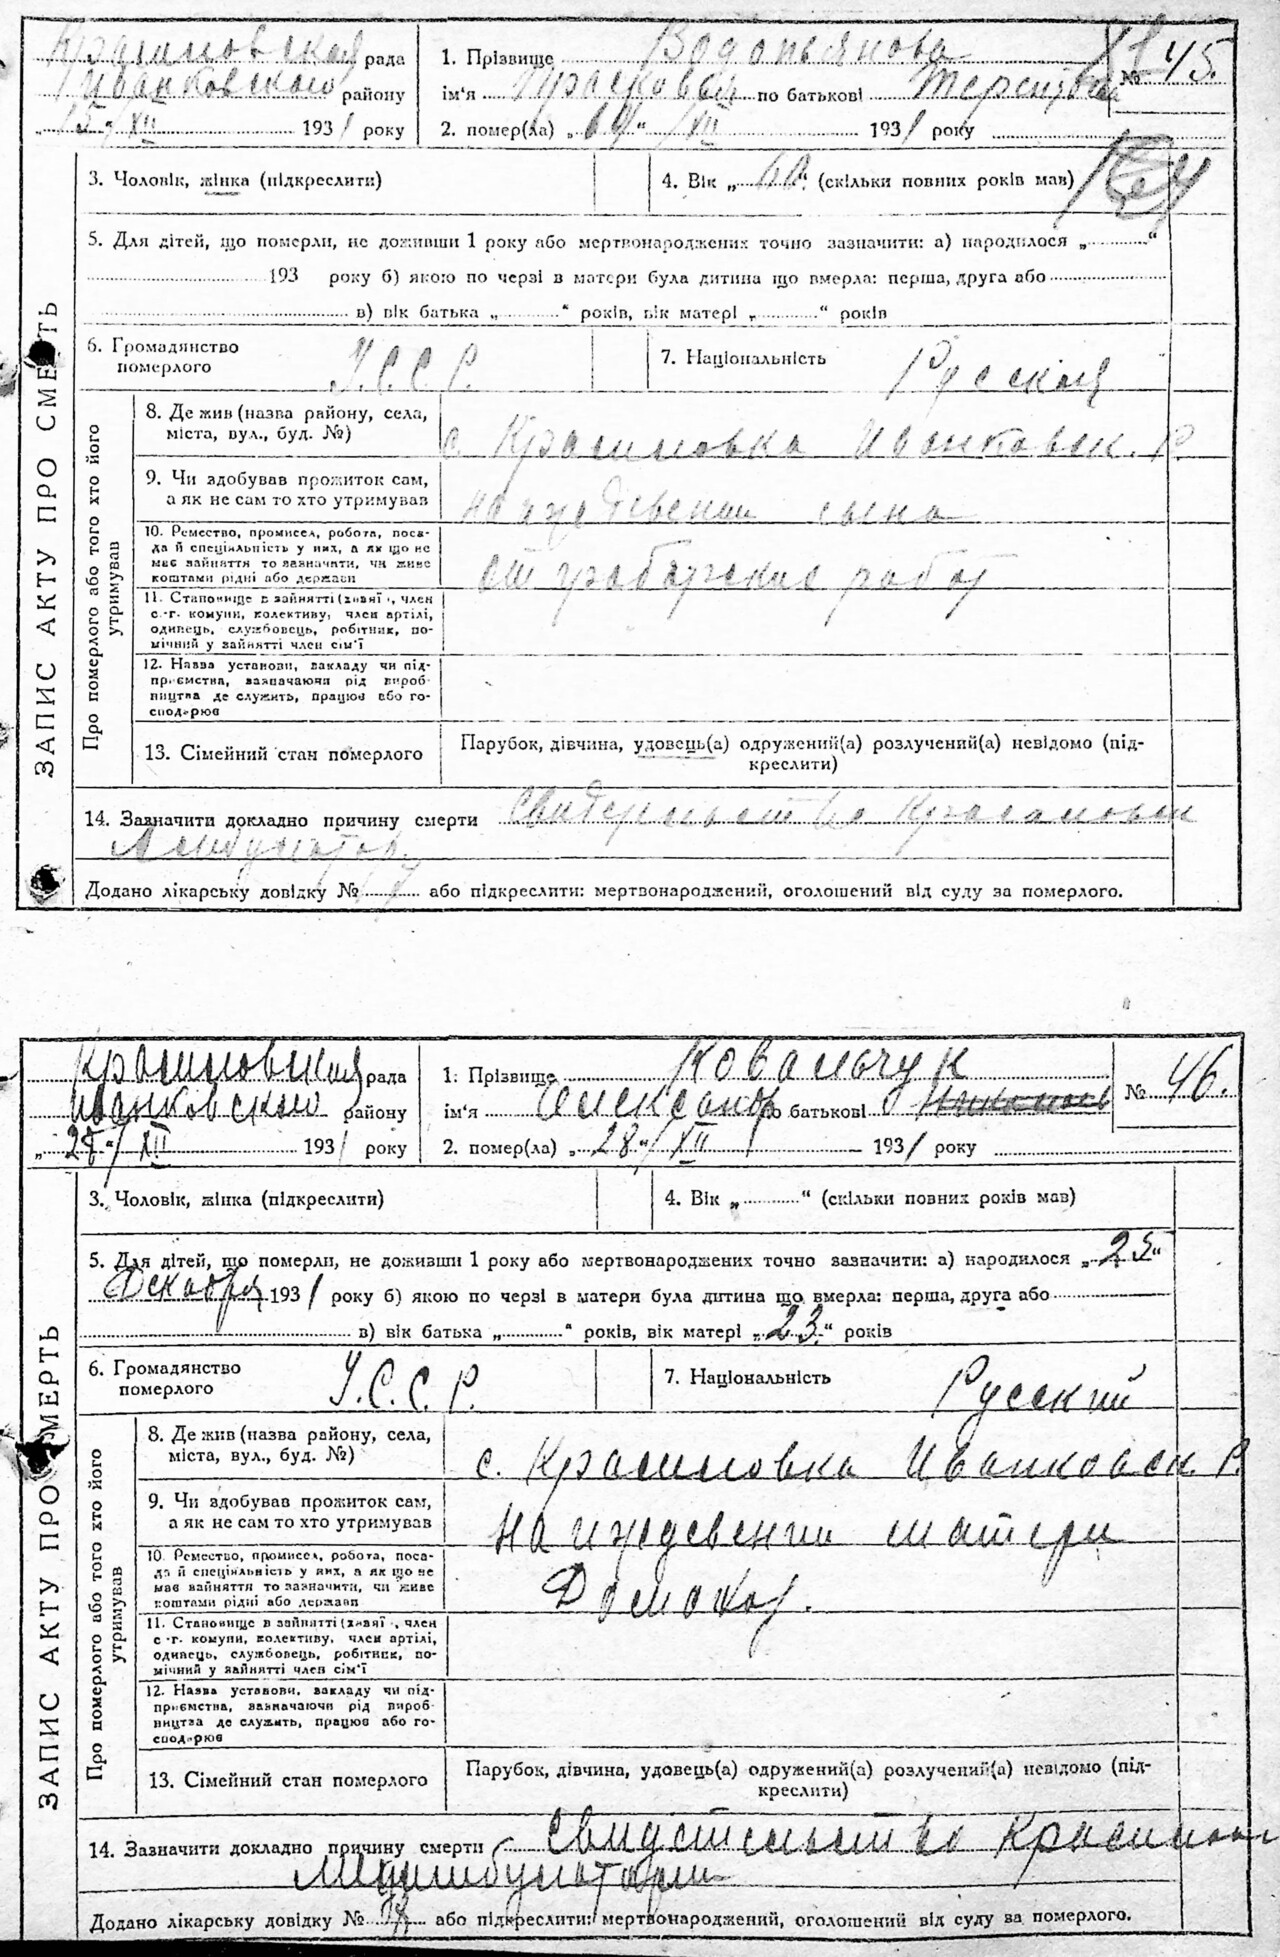 Красиловская рада
Иванковского району
„ 15 "/XII 1931 року
1. Прізвище Водопьянова
№ 45.
ім'я Прасковья по батькові
2. помер(ла) „ "/XII 1931 року
3. Чоловік, жінка (підкреслити)
4. Вік „ 60 " (скільки повних років мав)
5. Для дітей, що померли, не доживши 1 року або мертвонароджених точно зазначити: а) народилося „ "
193 року б) якою по черзі в матери була дитина що вмерла: перша, друга або
в) вік батька „ " років, вік матері „ " років
6. Громадянство
померлого
У.С.С.Р.
7. Національність Русская
ЗАПИС АКТУ ПРО СМЕРТЬ
Про померлого або того хто його
утримував
8. Де жив (назва району, села,
міста, вул., буд. №)
с. Красиловка Иванковск. Р.
9. Чи здобував прожиток сам,
а як не сам то хто утримував
на иждевении сына
10. Ремество, промисел, робота, поса-
да й спеціяльність у них, а як що не
має зайняття то зазначити, чи живе
коштами рідні або держави
от грабарских работ
11. Становище в зайнятті (хазяї , член
с.-г. комуни, колективу, член артілі,
одинець, службовець, робітник, по-
мічний у зайнятті член сім'ї
12. Назва установи, закладу чи під-
приємства, зазначаючи рід вироб-
ництва де служить, працює або го-
сподарює
13. Сімейний стан померлого
Парубок, дівчина, удовець(а) одружений(а) розлучений(а) невідомо (під-
креслити)
14. Зазначити докладно причину смерти
Амбулатор.
Додано лікарську довідку № або підкреслити: мертвонароджений, оголошений від суду за померлого.
Красиловская рада
Иванковского району
„ 28 "/XII 1931 року
1. Прізвище Ковальчук
№ 46.
ім'я Александр по батькові
2. помер(ла) „ 28 "/XII 1931 року
3. Чоловік, жінка (підкреслити)
4. Вік „ " (скільки повних років мав)
5. Для дітей, що померли, не доживши 1 року або мертвонароджених точно зазначити: а) народилося „ 25 "
Декабря 1931 року б) якою по черзі в матери була дитина що вмерла: перша, друга або
в) вік батька „ " років, вік матері „ 23 " років
6. Громадянство
померлого
У.С.С.Р.
7. Національність Русский
ЗАПИС АКТУ ПРО СМЕРТЬ
Про померлого або того хто його
утримував
8. Де жив (назва району, села,
міста, вул., буд. №)
с. Красиловка Иванковск. Р.
9. Чи здобував прожиток сам,
а як не сам то хто утримував
На иждевении матери
10. Ремество, промисел, робота, поса-
да й спеціяльність у них, а як що не
має зайняття то зазначити, чи живе
коштами рідні або держави
Домохоз.
11. Становище в зайнятті (хазяї , член
с.-г. комуни, колективу, член артілі,
одинець, службовець, робітник, по-
мічний у зайнятті член сім'ї
12. Назва установи, закладу чи під-
приємства, зазначаючи рід вироб-
ництва де служить, працює або го-
сподарює
13. Сімейний стан померлого
Парубок, дівчина, удовець(а) одружений(а) розлучений(а) невідомо (під-
креслити)
14. Зазначити докладно причину смерти
Додано лікарську довідку № або підкреслити: мертвонароджений, оголошений від суду за померлого.